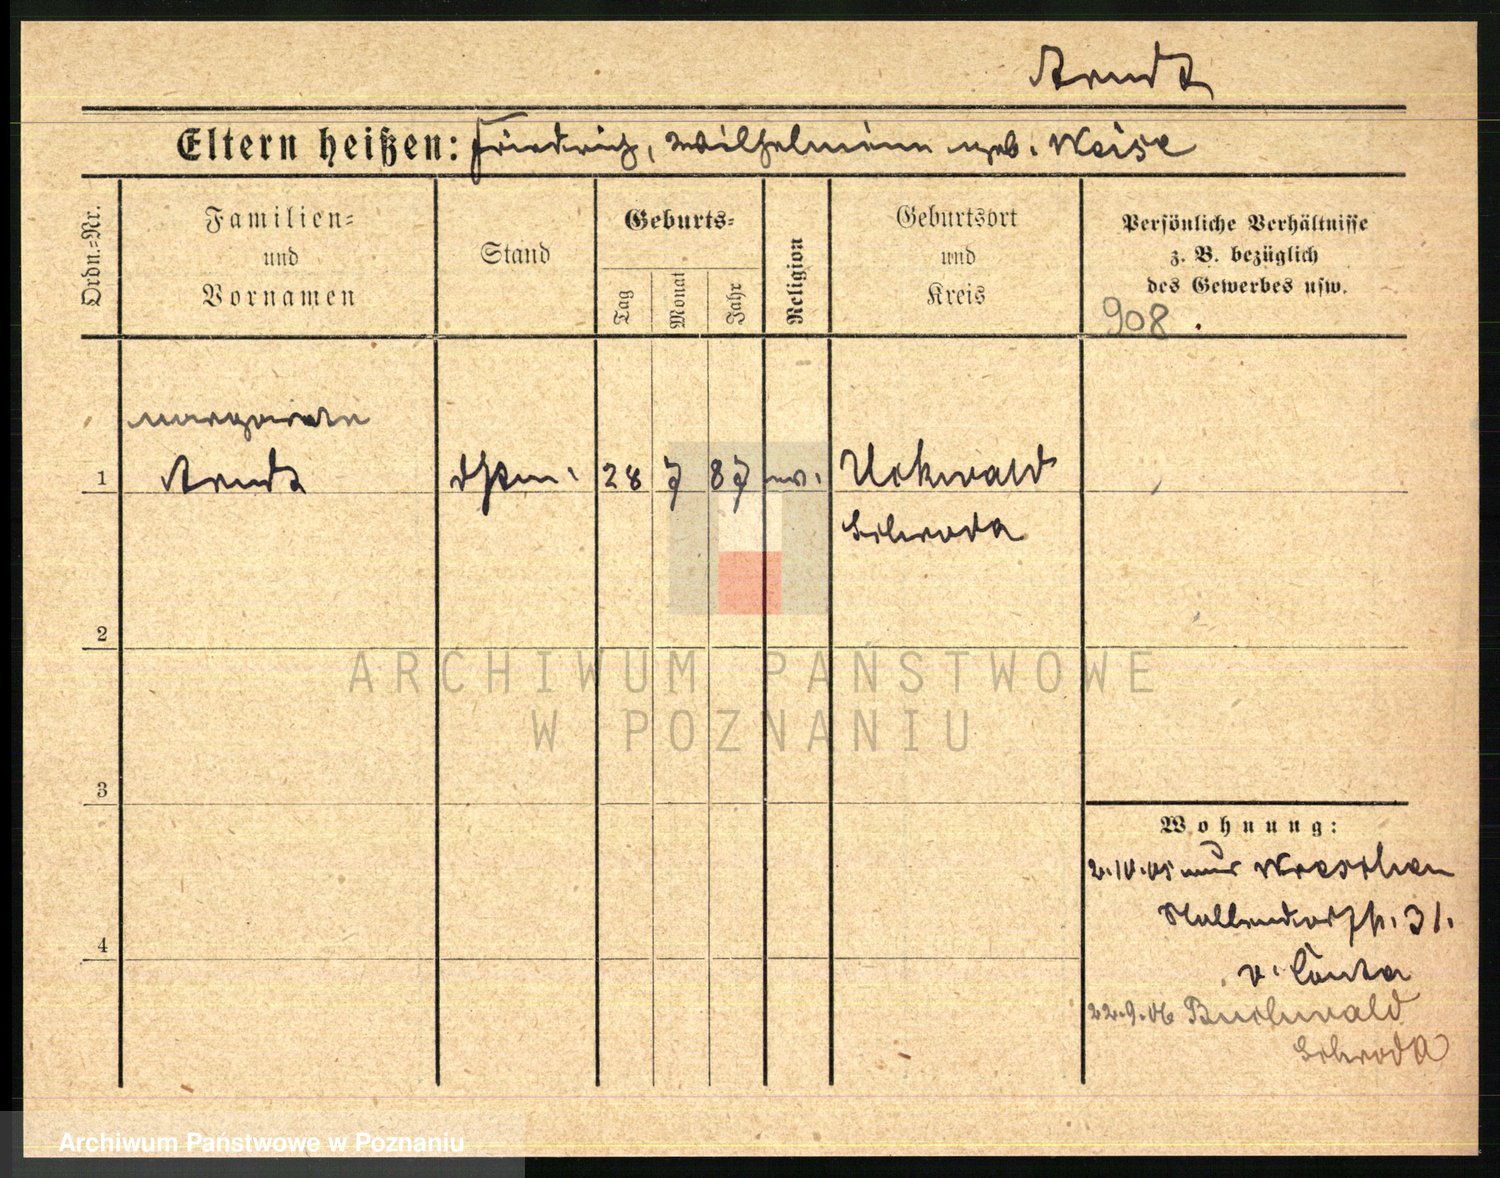 Arndt
Eltern heißen: Friedrich, Wilhelmine geb. Weise
Ordn.-Nr.
Familien-
und
Vornamen
Stand
Geburts-
Tag
Monat
Jahr
Religion
Geburtsort
und
Kreis
Persönliche Verhältnisse
z. B. bezüglich
des Gewerbes usw.
908
Margarete
1 Arndt 28 7 87 ev.
Schroda
2
3
4
ARCHIWUM PAŃSTWOWE
W POZNANIU
Wohnung:
2.10.05 aus Wreschen
31.
v.
22.9.06 Buchwald
Schroda
Archiwum Państwowe w Poznaniu